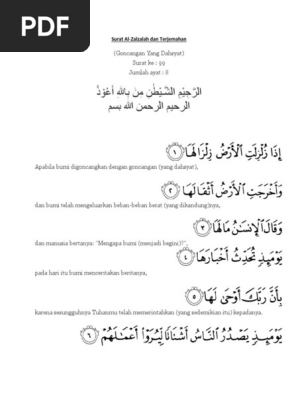 PDF
Surat Al-Zalzalah dan Terjemahan
(Goncangan Yang Dahsyat)
Surat ke : 99
Jumlah ayat : 8
الرَّجِيْمِ الشَّيْطٰنِ مِنَ بِاللهِ أَعُوْذُ
الرحيم الرحمن الله بسم
إِذَا زُلْزِلَتِ ٱلْأَرْضُ زِلْزَالَهَا ١
Apabila bumi digoncangkan dengan goncangan (yang dahsyat),
وَأَخْرَجَتِ ٱلْأَرْضُ أَثْقَالَهَا ٢
dan bumi telah mengeluarkan beban-beban berat (yang dikandung)nya,
وَقَالَ ٱلْإِنسَٰنُ مَا لَهَا ٣
dan manusia bertanya: "Mengapa bumi (menjadi begini)?",
يَوْمَئِذٍ تُحَدِّثُ أَخْبَارَهَا ٤
pada hari itu bumi menceritakan beritanya,
بِأَنَّ رَبَّكَ أَوْحَىٰ لَهَا ٥
karena sesungguhnya Tuhanmu telah memerintahkan (yang sedemikian itu) kepadanya.
يَوْمَئِذٍ يَصْدُرُ ٱلنَّاسُ أَشْتَاتًا لِّيُرَوْا۟ أَعْمَٰلَهُمْ ٦